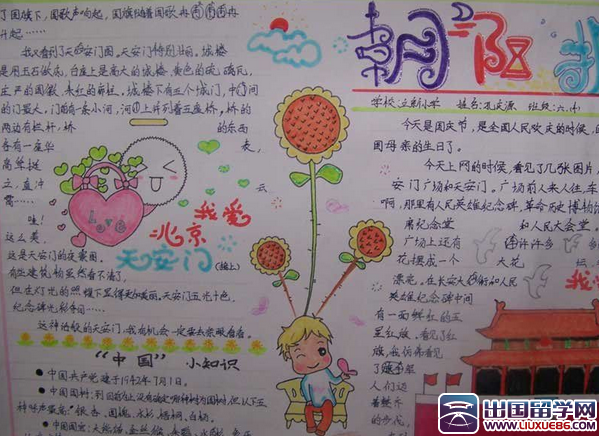 了国旗下，国歌声响起，国旗随着国歌冉冉
升起……
我又看到了天安门图，天安门特别壮丽，城楼
是用玉石做底，白座上是高大的城楼，黄色的琉璃瓦，
庄严的国徽，朱红的廊柱，城楼下有五个城门，中间
的门最大，门前有一条小河，河上并列着五座桥，桥的
两边有栏杆，桥的东西
各有一座华表，
高耸挺
立，直冲云
霄……
哇！
这么美，
这是天安门的夜景图。
有些建筑物虽然看不清了，
但在灯光的照耀下显得更加美丽，天安门五光十色，
纪念碑光彩夺目……
这神话般的天安门，我有机会一定要去亲眼看看。
我爱
北京
天安门
(接上)
Love
“中国”小知识
中国共产党建于1942年7月1日。
中国国树：
朝阳
学校：立新小学 姓名：孔庆源 班级：六.小
今天是国庆节，是全国人民欢庆的时候，
国母亲的生日了。
今天上网的时候，看见了几张图片，
安门广场和天安门。广场前人来人往，车
啊，那里有人民英雄纪念碑、革命历史博物
席纪念堂 和人民大会堂。
广场上还有 许许多多
花摆成一个 大花
漂亮，在长安大街和人民
英雄纪念碑中间
有一面鲜红的五
星红旗，看见了红
旗，我仿佛看见
了
人们迈
的步伐，
出国留学网
WWW.LIUXUE86.COM